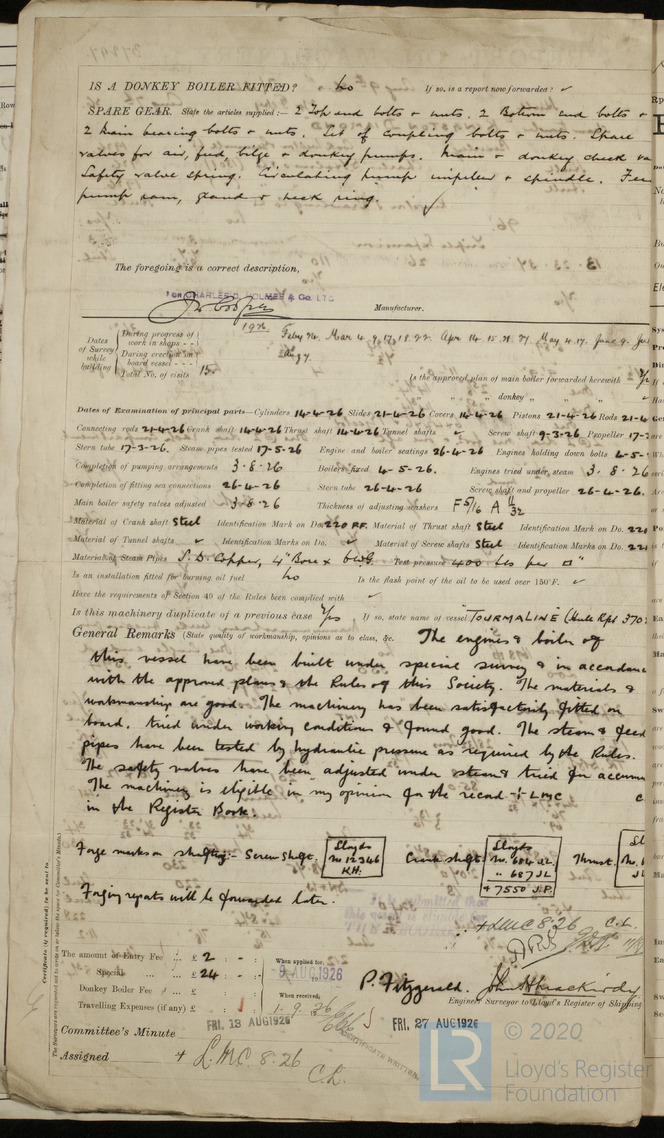 IS A DONKEY BOILER FITTED? No If so, is a report now forwarded? ✓
SPARE GEAR. State the articles supplied:— 2 Top end bolts & nuts. 2 Bottom end bolts &
2 main bearing bolts & nuts. Set of coupling bolts & nuts. Spare
valves for air, feed bilge & donkey pumps. Main & donkey check va
Safety valve spring. Circulating pump impeller & spindle. Feed
pump ram, gland & neck ring.
The foregoing is a correct description,
For CHARLES D. HOLMES & Co. LTD
Manufacturer.
1926
Dates of Survey while building
During progress of work in shops - - Feby 24. Mar 4. 9. 17. 18. 22. Apr 14. 15. 21. 27. May 4. 17. June 9.
During erection on board vessel - - - Aug 7.
Total No. of visits 15.
Is the approved plan of main boiler forwarded herewith
" " donkey " "
Dates of Examination of principal parts—Cylinders 14-4-26 Slides 21-4-26 Covers 14-4-26 Pistons 21-4-26 Rods 21-4
Connecting rods 21-4-26 Crank shaft 14-4-26 Thrust shaft 14-4-26 Tunnel shafts ✓ Screw shaft 9-3-26 Propeller 17-
Stern tube 17-3-26. Steam pipes tested 17-5-26 Engine and boiler seatings 26-4-26 Engines holding down bolts 4-5-
Completion of pumping arrangements 3.8.26 Boilers fixed 4-5-26. Engines tried under steam 3.8.26
Completion of fitting sea connections 26-4-26 Stern tube 26-4-26 Screw shaft and propeller 26-4-26.
Main boiler safety valves adjusted 3.8.26 Thickness of adjusting washers F 5/16 A 11/32
Material of Crank shaft Steel Identification Mark on Do. 220 FF. Material of Thrust shaft Steel Identification Mark on Do. 220
Material of Tunnel shafts ✓ Identification Marks on Do. ✓ Material of Screw shafts Steel Identification Marks on Do. 220
Material of Steam Pipes S.D. Copper, 4" Bore x 6WG. Test pressure 400 lbs per □"
Is an installation fitted for burning oil fuel No Is the flash point of the oil to be used over 150°F. ✓
Have the requirements of Section 49 of the Rules been complied with ✓
Is this machinery duplicate of a previous case Yes If so, state name of vessel "TOURMALINE" (Hull Rpt 370
General Remarks (State quality of workmanship, opinions as to class, &c. The engines & boiler of
this vessel have been built under special survey & in accordance
with the approved plans & the Rules of this Society. The materials &
workmanship are good. The machinery has been satisfactorily fitted on
board, tried under working conditions & found good. The steam & feed
pipes have been tested by hydraulic pressure as required by the Rules.
The safety valves have been adjusted under steam & tried for accum
The machinery is eligible in my opinion for the record + LMC
in the Register Book.
Forge marks on shafting:- Screw Shaft. Lloyds No 12346 K.H. Crank shaft Lloyds No. 684 JL. " 687 JL + 7550 J.P. Thrust.
Forging reports will be forwarded later.
+ LMC 8.26 C.L.
The amount of Entry Fee .. £ 2 : - :
Special ... £ 24 : - :
Donkey Boiler Fee £ : :
Travelling Expenses (if any) £ : :
When applied for,
9 AUG 1926
When received,
1.9.26
P. Fitzgerald.
Engineer Surveyor to Lloyd's Register of Shipping
Committee's Minute FRI. 13 AUG 1926 FRI. 27 AUG 1926
CERTIFICATE WRITTEN
Assigned + L.M.C. 8.26
C.L.
Certificate (if required) to be sent to
The Surveyors are requested not to write on or below the space for Committee's Minute.
LR © 2020
Lloyd's Register
Foundation